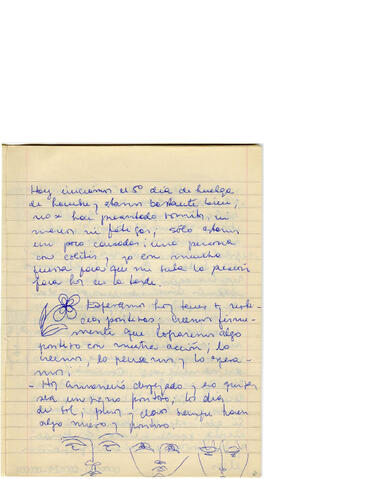 Hoy iniciamos el 5º dia de huelga
de hambre y estamos bastante bien;
no se han presentado vomitos, ni
mareos ni fatigas; sólo estamos
un poco cansados; una persona
con colitis, y yo con mucha
pena para que me suba la presión
para hoy en la tarde.
Esperamos hoy tener
positivas; creemos firme-
mente que lograremos algo
positivo con nuestra acción; lo
creemos, lo pensamos y lo espera-
mos;
- Hoy amaneció despejado y eso
sea un signo positivo; los dias
de sol; y claros siempre traen
algo nuevo y positivo.